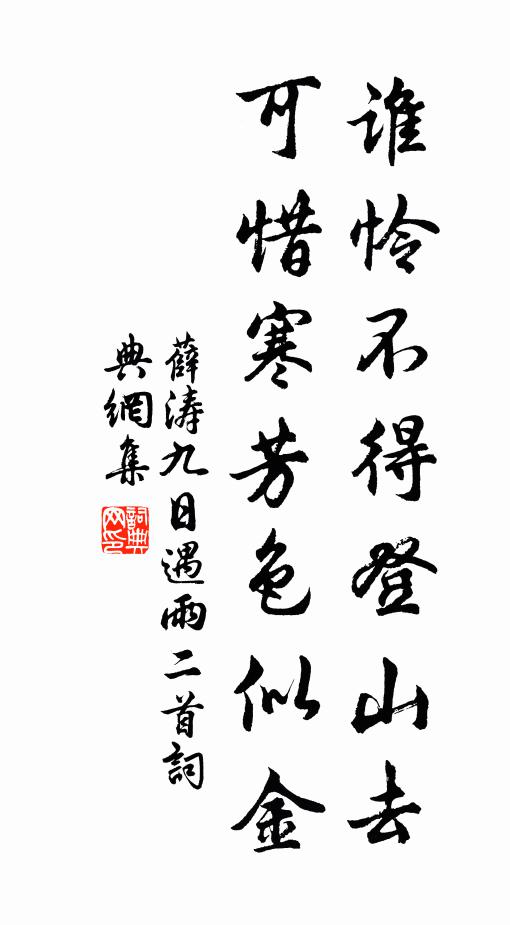 谁怜不得登山去
可惜寒芳色似金
薛涛九日遇雨二首詞
典網集
詞典網印